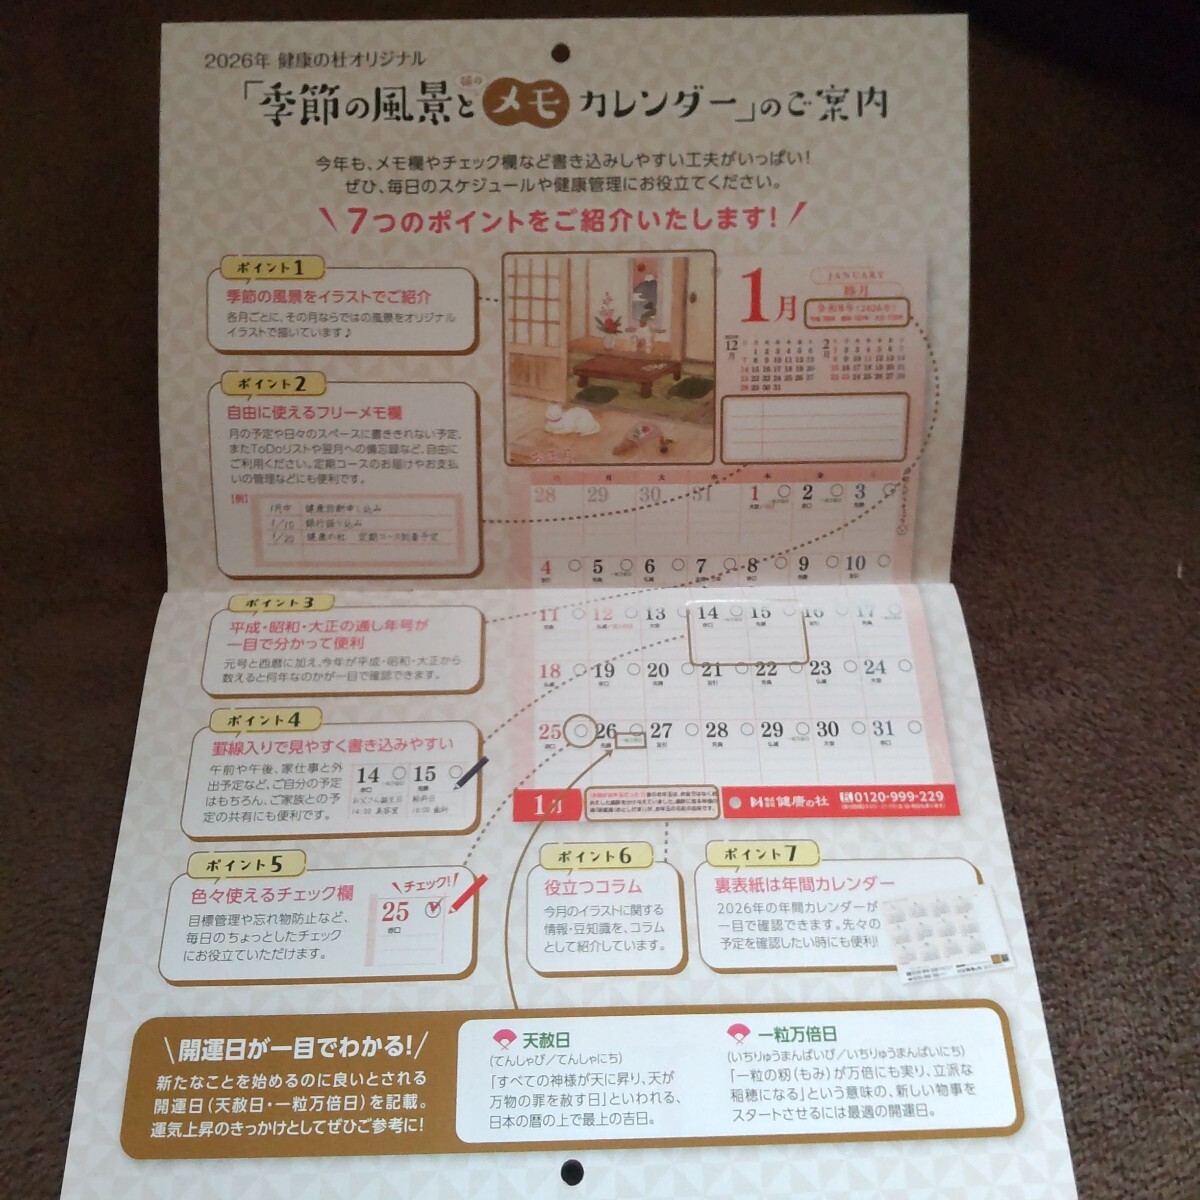 2026年 健康の杜オリジナル
「季節の風景と
猫の
メモ
カレンダー」のご案内
今年も、メモ欄やチェック欄など書き込みしやすい工夫がいっぱい!
ぜひ、毎日のスケジュールや健康管理にお役立てください。
7つのポイントをご紹介いたします!
ポイント1
季節の風景をイラストでご紹介
各月ごとに、その月ならではの風景をオリジナル
イラストで描いています♪
ポイント2
自由に使えるフリーメモ欄
月の予定や日々のスペースに書ききれない予定、
またToDoリストや翌月への備忘録など、自由に
ご利用ください。定期コースのお届けやお支払
いの管理などにも便利です。
【例】
1月中 健康診断申し込み
1/10 銀行振り込み
1/20 健康の杜 定期コース到着予定
1月
JANUARY
睦月
令和8年(2026年)
12月
2月
28 29 30 31 1 2 3
4 5 6 7 8 9 10
11 12 13 14 15 16 17
18 19 20 21 22 23 24
25 26 27 28 29 30 31
1月
健康の杜
0120-999-229
ポイント3
平成・昭和・大正の通し年号が
一目で分かって便利
元号と西暦に加え、今年が平成・昭和・大正から
数えると何年なのかが一目で確認できます。
ポイント4
罫線入りで見やすく書き込みやすい
午前や午後、家仕事と外
出予定など、ご自分の予定
はもちろん、ご家族との予
定の共有にも便利です。
14 15
赤口 先勝
お父さん誕生日
14:00 美容室
ポイント5
色々使えるチェック欄
目標管理や忘れ物防止など、
毎日のちょっとしたチェック
にお役立ていただけます。
チェック!
25
赤口
ポイント6
役立つコラム
今月のイラストに関する
情報・豆知識を、コラム
として紹介しています。
ポイント7
裏表紙は年間カレンダー
2026年の年間カレンダーが
一目で確認できます。先々の
予定を確認したい時にも便利!
開運日が一目でわかる!
新たなことを始めるのに良いとされる
開運日(天赦日・一粒万倍日)を記載。
運気上昇のきっかけとしてぜひご参考に!
天赦日
(てんしゃび/てんしゃにち)
「すべての神様が天に昇り、天が
万物の罪を赦す日」といわれる、
日本の暦の上で最上の吉日。
一粒万倍日
(いちりゅうまんばいび/いちりゅうまんばいにち)
「一粒の籾(もみ)が万倍にも実り、立派な
稲穂になる」という意味の、新しい物事を
スタートさせるには最適の開運日。